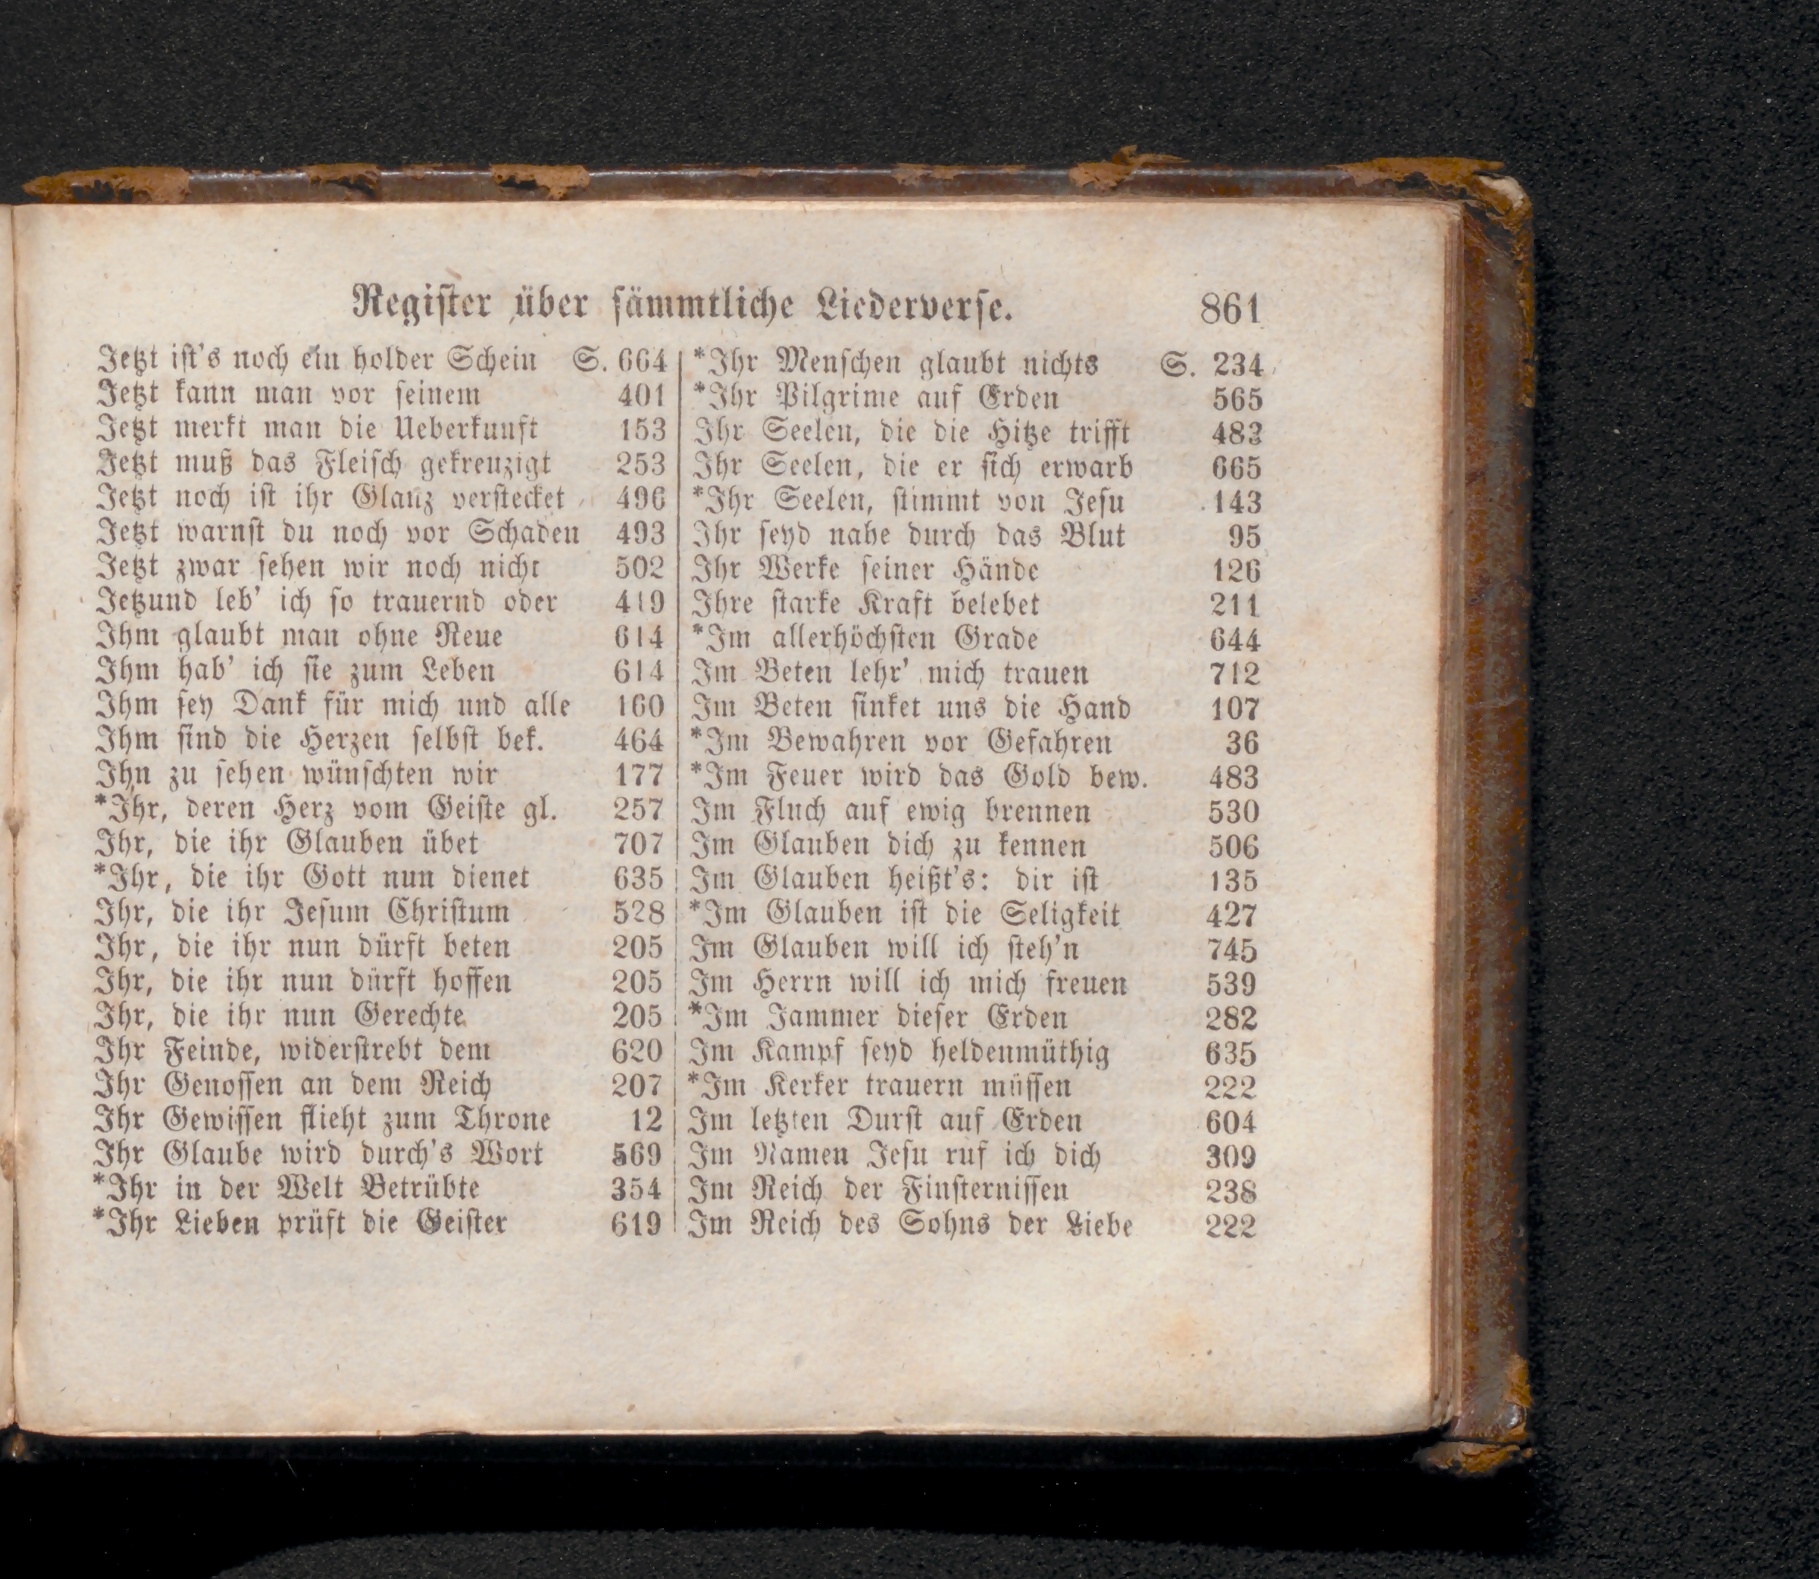 Register über sämmtliche Liederverse. 861
Jetzt ist's noch ein holder Schein S. 664
Jetzt kann man vor seinem 401
Jetzt merkt man die Ueberkunft 153
Jetzt muß das Fleisch gekreuzigt 253
Jetzt noch ist ihr Glanz verstecket 496
Jetzt warnst du noch vor Schaden 493
Jetzt zwar sehen wir noch nicht 502
Jetzund leb' ich so trauernd oder 419
Ihm glaubt man ohne Reue 614
Ihm hab' ich sie zum Leben 614
Ihm sey Dank für mich und alle 160
Ihm sind die Herzen selbst bek. 464
Ihn zu sehen wünschten wir 177
*Ihr, deren Herz vom Geiste gl. 257
Ihr, die ihr Glauben übet 707
*Ihr, die ihr Gott nun dienet 635
Ihr, die ihr Jesum Christum 528
Ihr, die ihr nun dürft beten 205
Ihr, die ihr nun dürft hoffen 205
Ihr, die ihr nun Gerechte 205
Ihr Feinde, widerstrebt dem 620
Ihr Genossen an dem Reich 207
Ihr Gewissen flieht zum Throne 12
Ihr Glaube wird durch's Wort 569
*Ihr in der Welt Betrübte 354
*Ihr Lieben prüft die Geister 619
*Ihr Menschen glaubt nichts S. 234
*Ihr Pilgrime auf Erden 565
Ihr Seelen, die die Hitze trifft 483
Ihr Seelen, die er sich erwarb 665
*Ihr Seelen, stimmt von Jesu 143
Ihr seyd nahe durch das Blut 95
Ihr Werke seiner Hände 126
Ihre starke Kraft belebet 211
*Im allerhöchsten Grade 644
Im Beten lehr' mich trauen 712
Im Beten sinket uns die Hand 107
*Im Bewahren vor Gefahren 36
*Im Feuer wird das Gold bew. 483
Im Fluch auf ewig brennen 530
Im Glauben dich zu kennen 506
Im Glauben heißt's: dir ist 135
*Im Glauben ist die Seligkeit 427
Im Glauben will ich steh'n 745
Im Herrn will ich mich freuen 539
*Im Jammer dieser Erden 282
Im Kampf seyd heldenmüthig 635
*Im Kerker trauern müssen 222
Im letzten Durst auf Erden 604
Im Namen Jesu ruf ich dich 309
Im Reich der Finsternissen 238
Im Reich des Sohns der Liebe 222